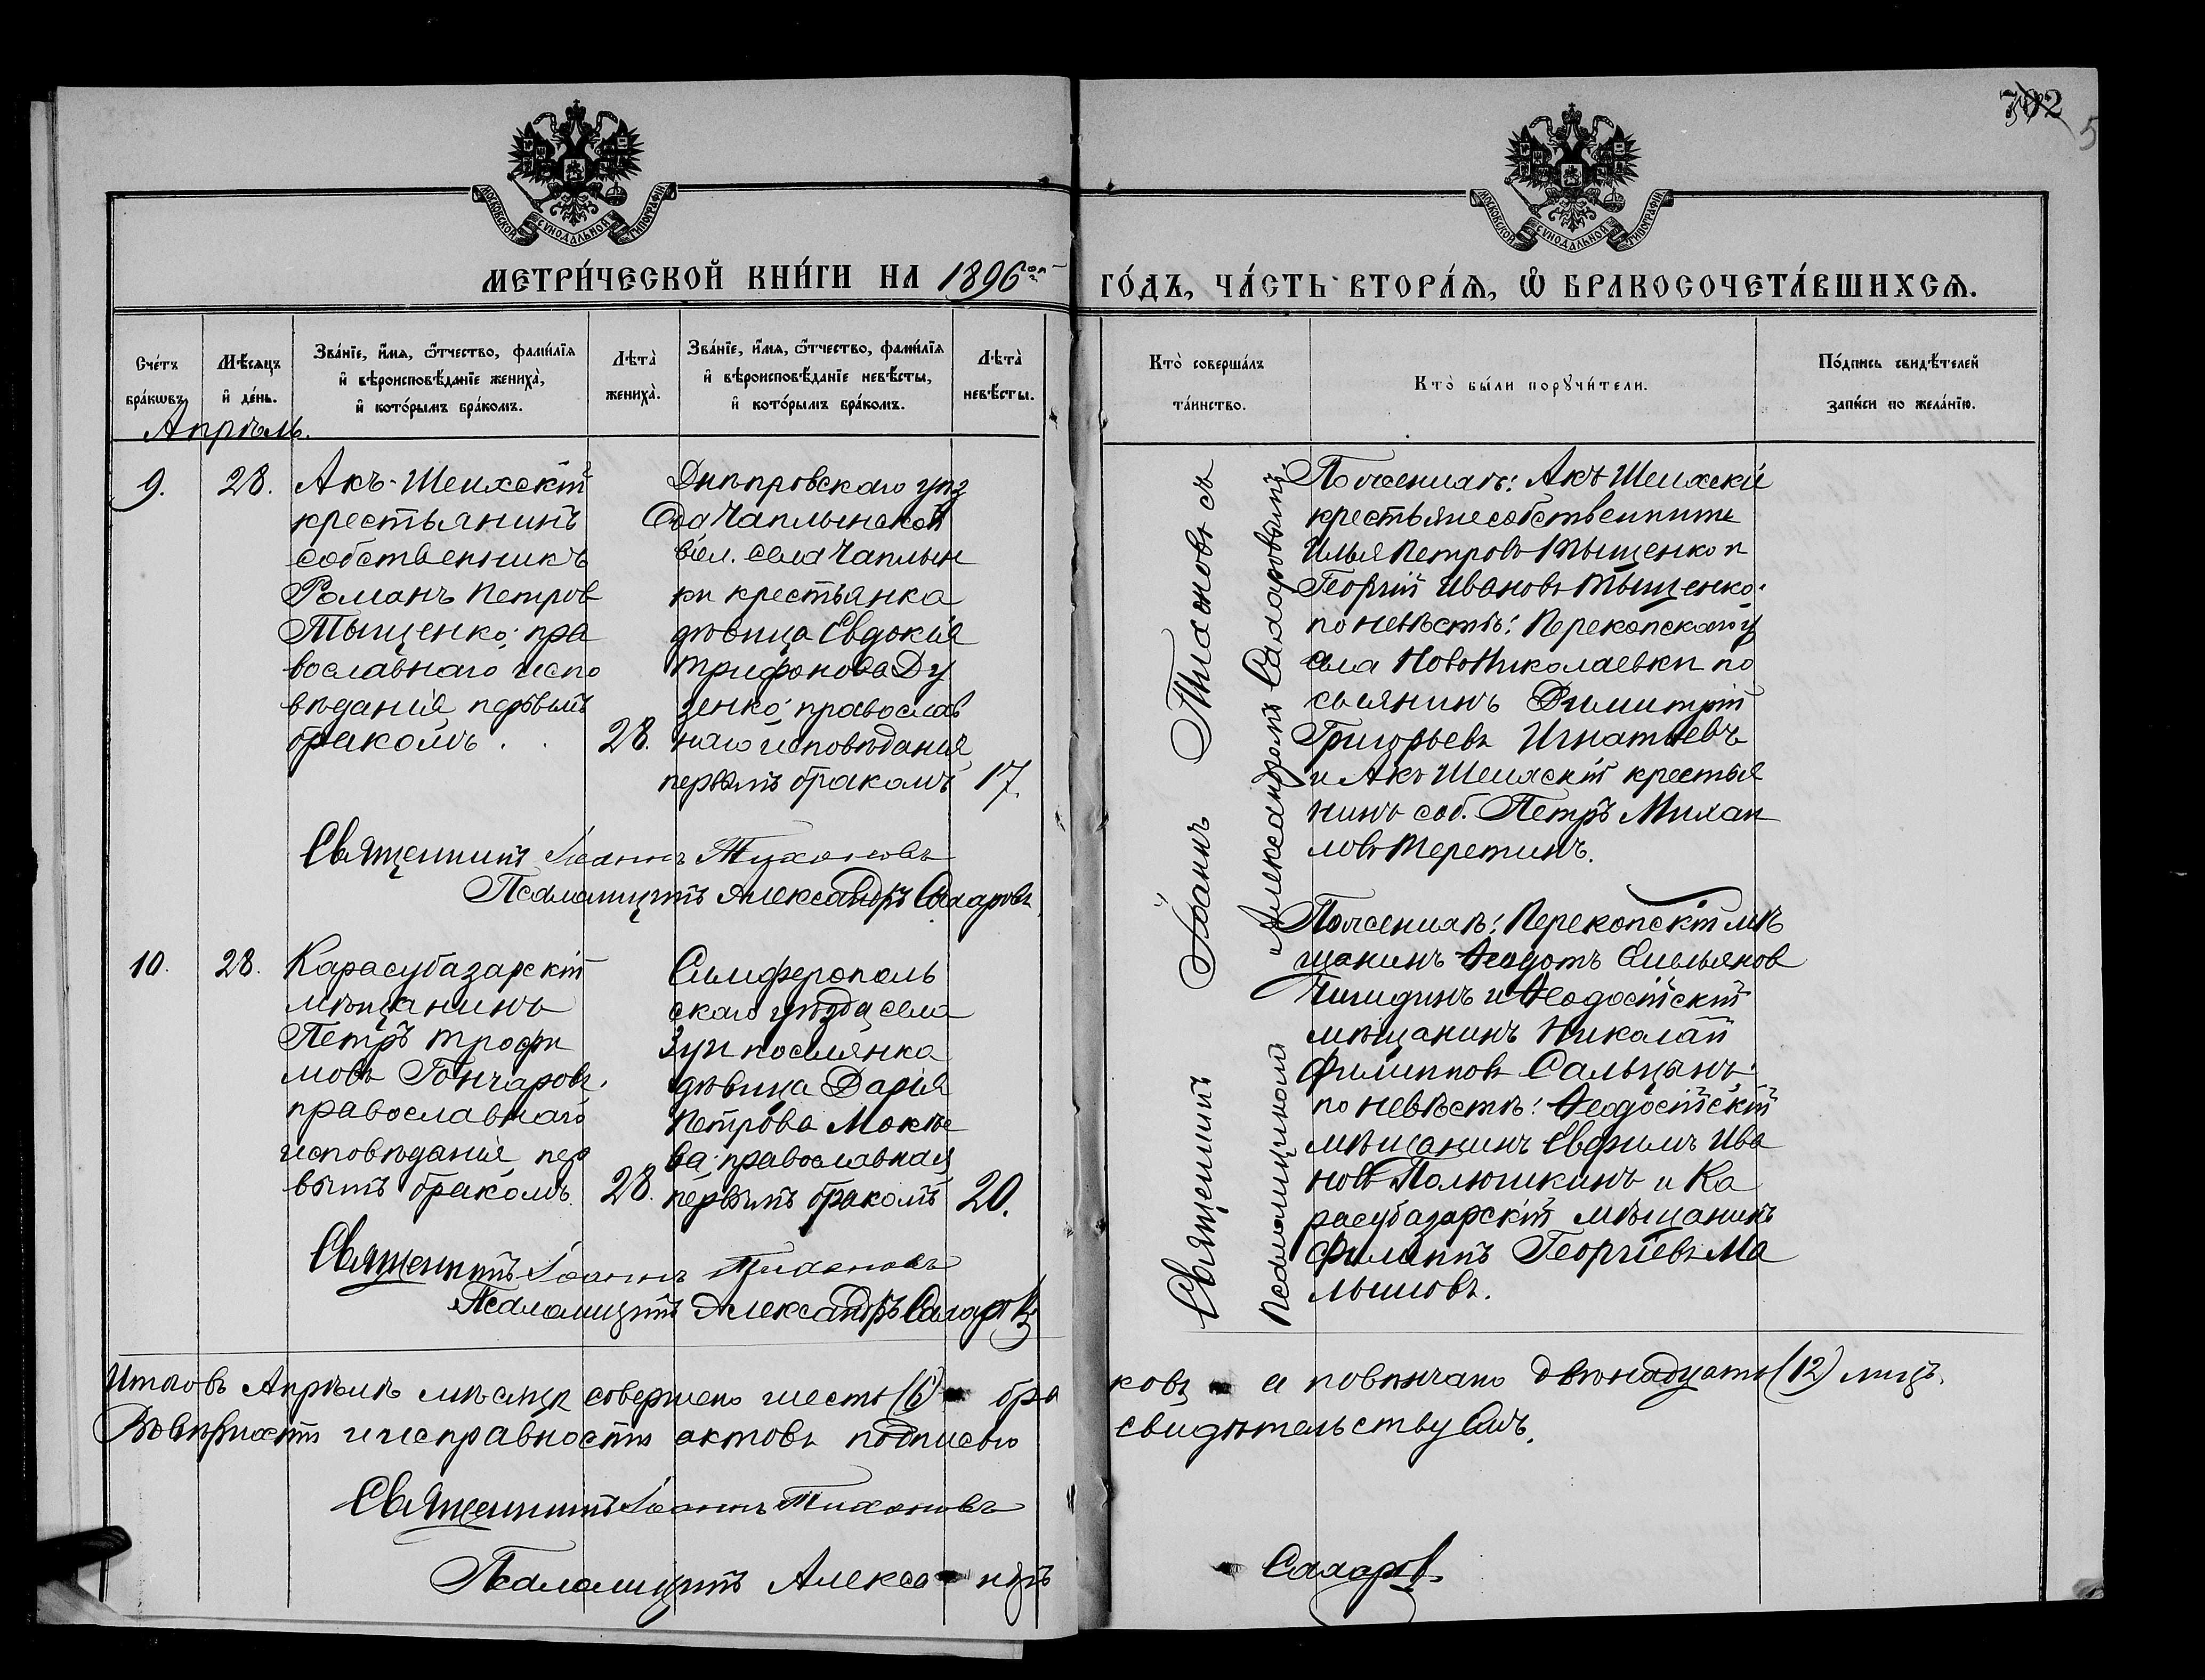 702
5
МОСКОВСКОЙ СѴНОДАЛЬНОЙ ТИПОГРАФІИ
МОСКОВСКОЙ СѴНОДАЛЬНОЙ ТИПОГРАФІИ
МЕТРИ́ЧЕСКОЙ КНИ́ГИ НА 1896 ГО́ДЪ, ЧА́СТЬ ВТОРА́Ѧ, Ѿ БРАКОСОЧЕТА́ВШИХСѦ.
Сче́тъ
бра́кѡвъ.
Мѣ́сѧцъ
и҆ де́нь.
Зва́нїе, и҆́мѧ, ѻ҆́тчество, фами́лїѧ
и҆ вѣроисповѣ́данїе жениха̀,
и҆ кото́рымъ бра́комъ.
Лѣта̀
жениха̀.
Зва́нїе, и҆́мѧ, ѻ҆́тчество, фами́лїѧ
и҆ вѣроисповѣ́данїе невѣ́сты,
и҆ кото́рымъ бра́комъ.
Лѣта̀
невѣ́сты.
Кто̀ соверша́лъ
та́инство.
Кто̀ бы́ли порꙋчи́тели.
По́дпись свидѣ́телей
за́писи по жела́нїю.
Апрѣль.
9.
28.
Акъ-Шеихскій
крестьянинъ
собственникъ
Романъ Петров
Тыщенко; пра
вославнаго испо
вѣданія, первымъ
бракомъ.
28.
Днѣпровскаго уѣз
да Чаплынской
вол. села Чаплын
ки крестьянка
дѣвица Евдокія
Трифонова Ду
зенко; православ
наго исповѣданія,
первымъ бракомъ
17.
Священникъ Іоаннъ Тихоновъ
Псаломщикъ Александръ Сахаровъ.
По женихѣ: Акъ Шеихскіе
крестьяне собственники
Илья Петровъ Тыщенко и
Георгій Ивановъ Тыщенко;
по невѣстѣ: Перекопскаго у
села НовоНиколаевки по
селянинъ Димитрій
Григорьевъ Игнатьевъ
и Акъ Шеихскій крестья
нинъ соб. Петръ Михаи
ловъ Теретинъ.
10.
28.
Карасубазарскій
мѣщанинъ
Петръ Трофи
мовъ Гончаровъ,
православнаго
исповѣданія, пер
вымъ бракомъ.
28.
Симферополь
скаго уѣзда села
Зуи поселянка
дѣвица Дарія
Петрова Мокѣе
ва; православная
первымъ бракомъ
20.
Священникъ Іоаннъ Тихоновъ
Псаломщикъ Александръ Сахаровъ
По женихѣ: Перекопскій мѣ
щанинъ Ѳеодотъ Емельянов
и Ѳеодосійскій
мѣщанинъ Николай
Филипповъ Сальцынъ;
по невѣстѣ: Ѳеодосійскій
мѣщанинъ Евфимъ Ива
новъ Полюшкинъ и Ка
расубазарскій мѣщанинъ
Филиппъ Георгіевъ Ма
лышовъ.
Священникъ Іоаннъ Тихоновъ съ
Псаломщикомъ Александромъ Сахаровымъ.
Итого въ Апрѣлѣ мѣсяцѣ совершено шесть (6) бра ковъ а повѣнчано двѣнадцать (12) лицъ.
Въ вѣрности и исправности актовъ подписью свидѣтельствуемъ.
Священникъ Іоаннъ Тихоновъ
Псаломщикъ Александръ Сахаровъ.